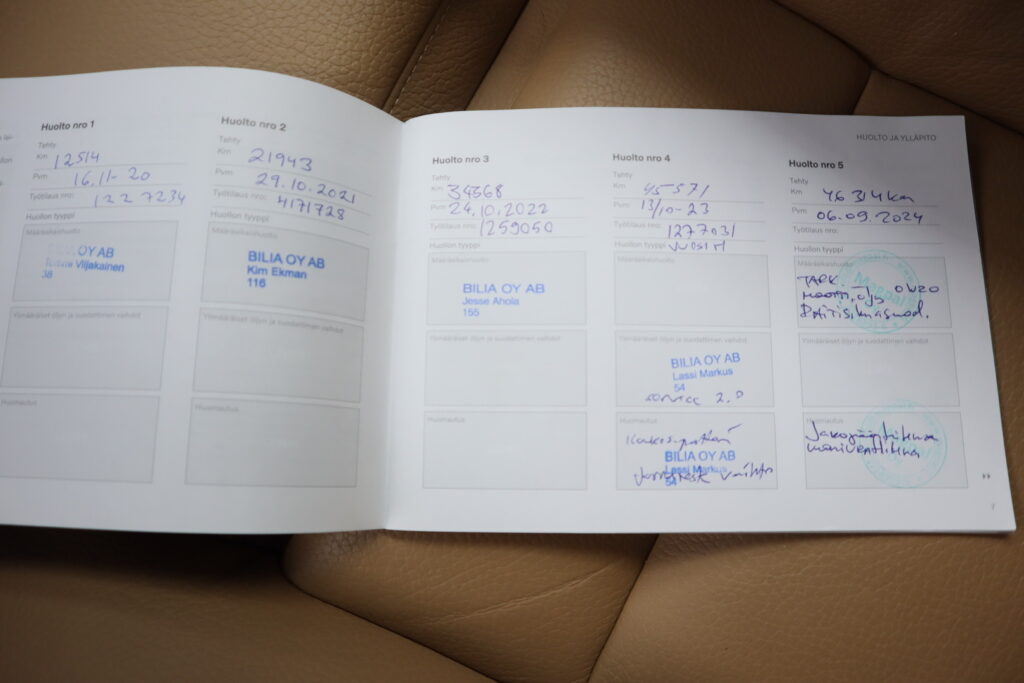 HUOLTO JA YLLÄPITO
Huolto nro 1
Tehty
Km 12514
Pvm 16.11-20
Työtilaus nro: 122 7234
Huollon tyyppi
Määräaikaishuolto
OY AB
Viljakainen
38
Ylimääräiset öljyn ja suodattimen vaihdot
Huomautus
Huolto nro 2
Tehty
Km 21943
Pvm 29.10.2021
Työtilaus nro: 4171728
Huollon tyyppi
Määräaikaishuolto
BILIA OY AB
Kim Ekman
116
Ylimääräiset öljyn ja suodattimen vaihdot
Huomautus
Huolto nro 3
Tehty
Km 34368
Pvm 24.10.2022
Työtilaus nro: 1259050
Huollon tyyppi
Määräaikaishuolto
BILIA OY AB
Jesse Ahola
155
Ylimääräiset öljyn ja suodattimen vaihdot
Huomautus
Huolto nro 4
Tehty
Km 45571
Pvm 13/10-23
Työtilaus nro: 1277031
Huollon tyyppi
Määräaikaishuolto
Ylimääräiset öljyn ja suodattimen vaihdot
BILIA OY AB
Lassi Markus
54
service 2.0
Huomautus
BILIA OY AB
Lassi Markus
54
vaihto
Huolto nro 5
Tehty
Km 46 314 km
Pvm 06.09.2024
Työtilaus nro:
Huollon tyyppi
Määräaikaishuolto
TARK.
0W20
Ylimääräiset öljyn ja suodattimen vaihdot
Huomautus
7